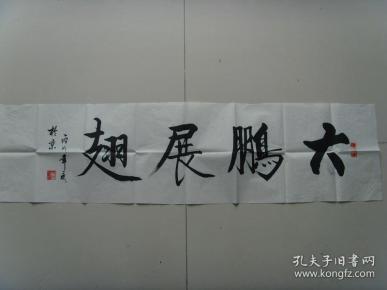 大鵬展翅
於京
孔夫子旧书网
www.kongfz.com